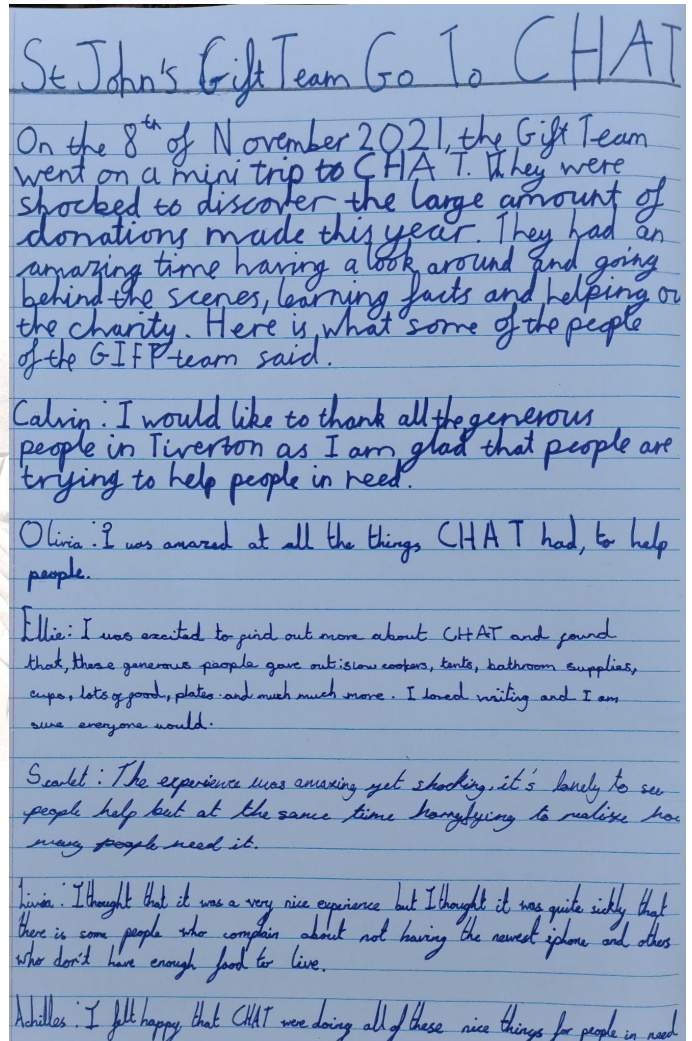 St John's Gift Team Go To CHAT
On the 8th of November 2021, the Gift Team
went on a mini trip to CHAT. They were
shocked to discover the large amount of
donations made this year. They had an
amazing time having a look around and going
behind the scenes, learning facts and helping ou
the charity. Here is what some of the people
of the GIFP team said.
Calvin: I would like to thank all the generous
people in Tiverton as I am glad that people are
trying to help people in need.
Olivia: I was amazed at all the things CHAT had, to help
people.
Ellie: I was excited to find out more about CHAT and found
that, these generous people gave out: slow cookers, tents, bathroom supplies,
cups, lots of food, plates and much much more. I loved visiting and I am
sure everyone would.
Scarlet: The experience was amazing yet shocking, it's lovely to see
people help but at the same time horryfying to realise how
many people need it.
Livia: I thought that it was a very nice experience but I thought it was quite sickly that
there is some people who complain about not having the newest iphone and others
who don't have enough food to live.
Achilles: I felt happy that CHAT were doing all of these nice things for people in need